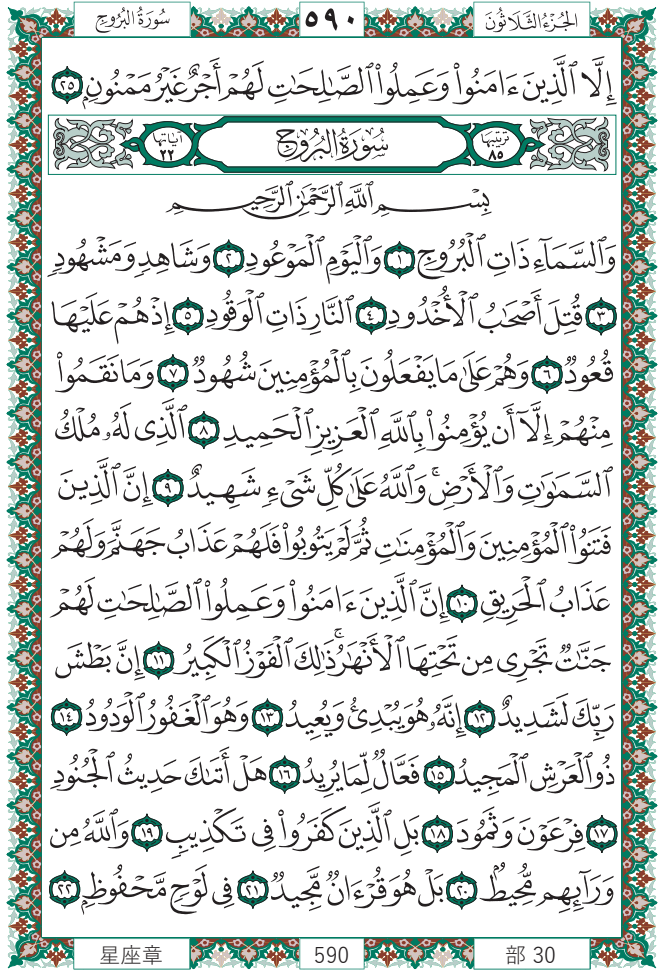 الجُزْءُ الثَّلَاثُونَ ٥٩٠ سُورَةُ البُرُوجِ
إِلَّا ٱلَّذِينَ ءَامَنُواْ وَعَمِلُواْ ٱلصَّٰلِحَٰتِ لَهُمْ أَجْرٌ غَيْرُ مَمْنُونِۭ ٢٥
ترتيبها ٨٥ سُورَةُ البُرُوجِ آياتها ٢٢
بِسْمِ ٱللَّهِ ٱلرَّحْمَٰنِ ٱلرَّحِيمِ
وَٱلسَّمَآءِ ذَاتِ ٱلْبُرُوجِ ١ وَٱلْيَوْمِ ٱلْمَوْعُودِ ٢ وَشَاهِدٍ وَمَشْهُودٍ
٣ قُتِلَ أَصْحَٰبُ ٱلْأُخْدُودِ ٤ ٱلنَّارِ ذَاتِ ٱلْوَقُودِ ٥ إِذْ هُمْ عَلَيْهَا
قُعُودٌ ٦ وَهُمْ عَلَىٰ مَا يَفْعَلُونَ بِٱلْمُؤْمِنِينَ شُهُودٌ ٧ وَمَا نَقَمُواْ
مِنْهُمْ إِلَّآ أَن يُؤْمِنُواْ بِٱللَّهِ ٱلْعَزِيزِ ٱلْحَمِيدِ ٨ ٱلَّذِى لَهُۥ مُلْكُ
ٱلسَّمَٰوَٰتِ وَٱلْأَرْضِۚ وَٱللَّهُ عَلَىٰ كُلِّ شَىْءٍ شَهِيدٌ ٩ إِنَّ ٱلَّذِينَ
فَتَنُواْ ٱلْمُؤْمِنِينَ وَٱلْمُؤْمِنَٰتِ ثُمَّ لَمْ يَتُوبُواْ فَلَهُمْ عَذَابُ جَهَنَّمَ وَلَهُمْ
عَذَابُ ٱلْحَرِيقِ ١٠ إِنَّ ٱلَّذِينَ ءَامَنُواْ وَعَمِلُواْ ٱلصَّٰلِحَٰتِ لَهُمْ
جَنَّٰتٌ تَجْرِى مِن تَحْتِهَا ٱلْأَنْهَٰرُۚ ذَٰلِكَ ٱلْفَوْزُ ٱلْكَبِيرُ ١١ إِنَّ بَطْشَ
رَبِّكَ لَشَدِيدٌ ١٢ إِنَّهُۥ هُوَ يُبْدِئُ وَيُعِيدُ ١٣ وَهُوَ ٱلْغَفُورُ ٱلْوَدُودُ ١٤
ذُو ٱلْعَرْشِ ٱلْمَجِيدُ ١٥ فَعَّالٌ لِّمَا يُرِيدُ ١٦ هَلْ أَتَىٰكَ حَدِيثُ ٱلْجُنُودِ
١٧ فِرْعَوْنَ وَثَمُودَ ١٨ بَلِ ٱلَّذِينَ كَفَرُواْ فِى تَكْذِيبٍ ١٩ وَٱللَّهُ مِن
وَرَآئِهِم مُّحِيطٌۢ ٢٠ بَلْ هُوَ قُرْءَانٌ مَّجِيدٌ ٢١ فِى لَوْحٍ مَّحْفُوظٍۭ ٢٢
星座章 590 部 30